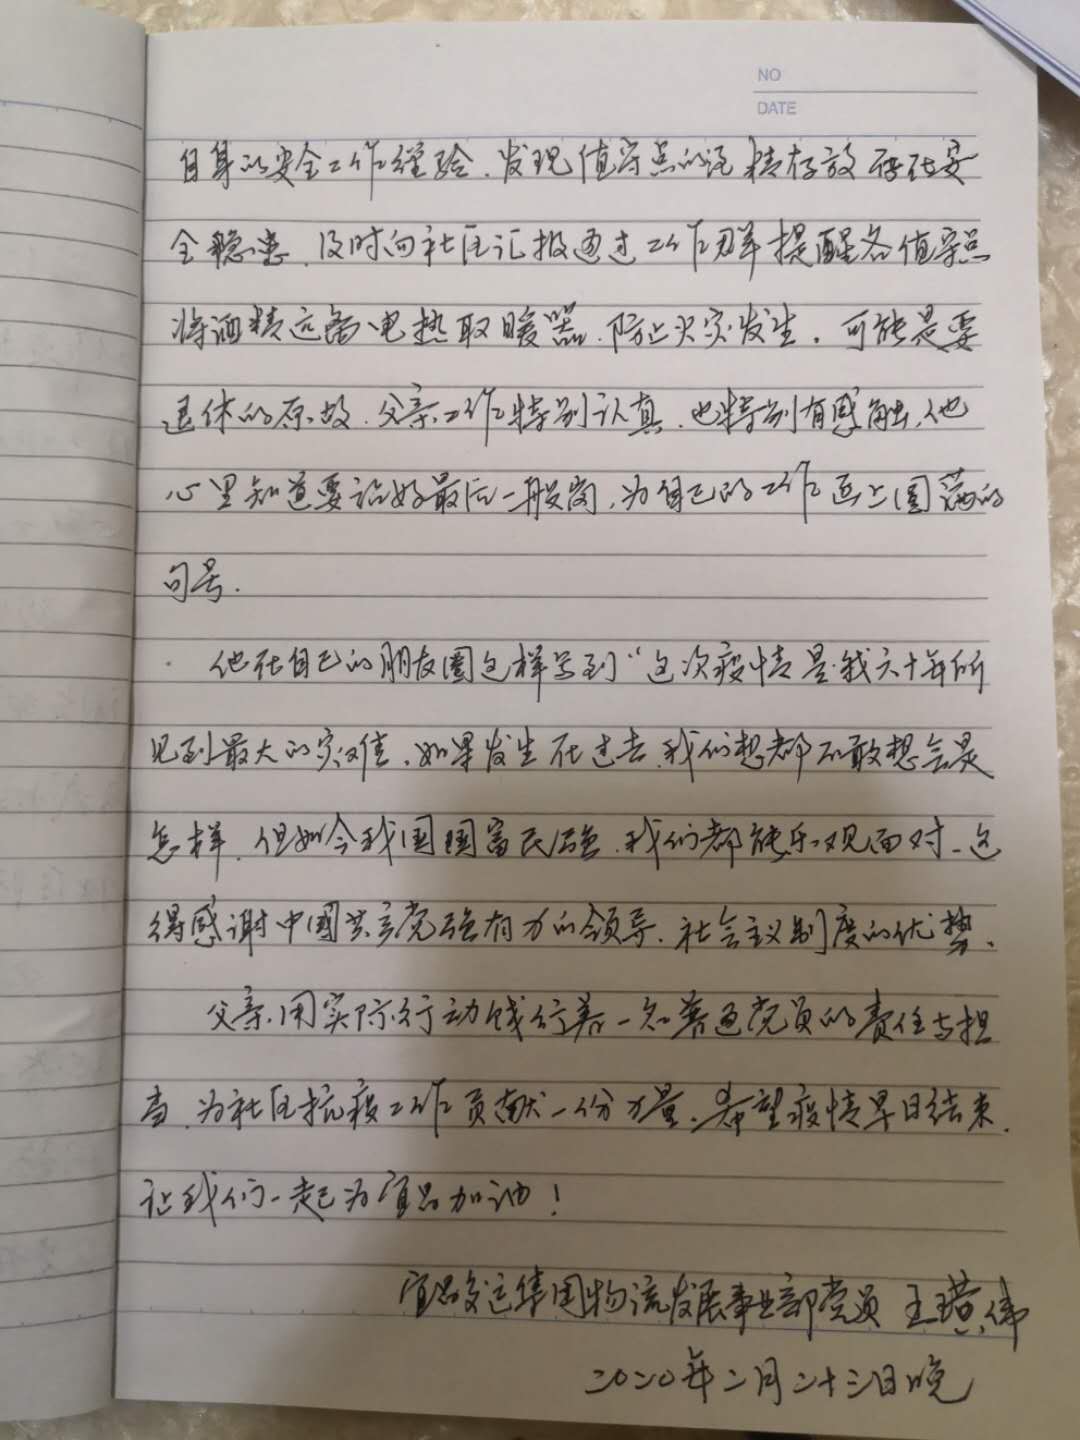 NO
DATE
自身的安全工作经验、发现值守点的酒精存放存在安
全隐患、及时向社区汇报通过工作群提醒各值守点
将酒精远离电热取暖器、防止火灾发生。可能是要
退休的原故、父亲工作特别认真、也特别有感触、他
心里知道要站好最后一般岗、为自己的工作画上圆满的
句号.
他在自己的朋友圈这样写到“这次疫情是我六十年所
见到最大的灾难、如果发生在过去、我们想都不敢想会是
怎样、但如今我国国富民强、我们都能乐观面对、这
得感谢中国共产党强有力的领导、社会主义制度的优势、
父亲用实际行动践行着一名普通党员的责任与担
当、为社区抗疫工作贡献一份力量、希望疫情早日结束、
让我们一起为宜昌加油！
宜昌交运集团物流发展事业部党员 王璜伟
二〇二〇年二月二十三日晚